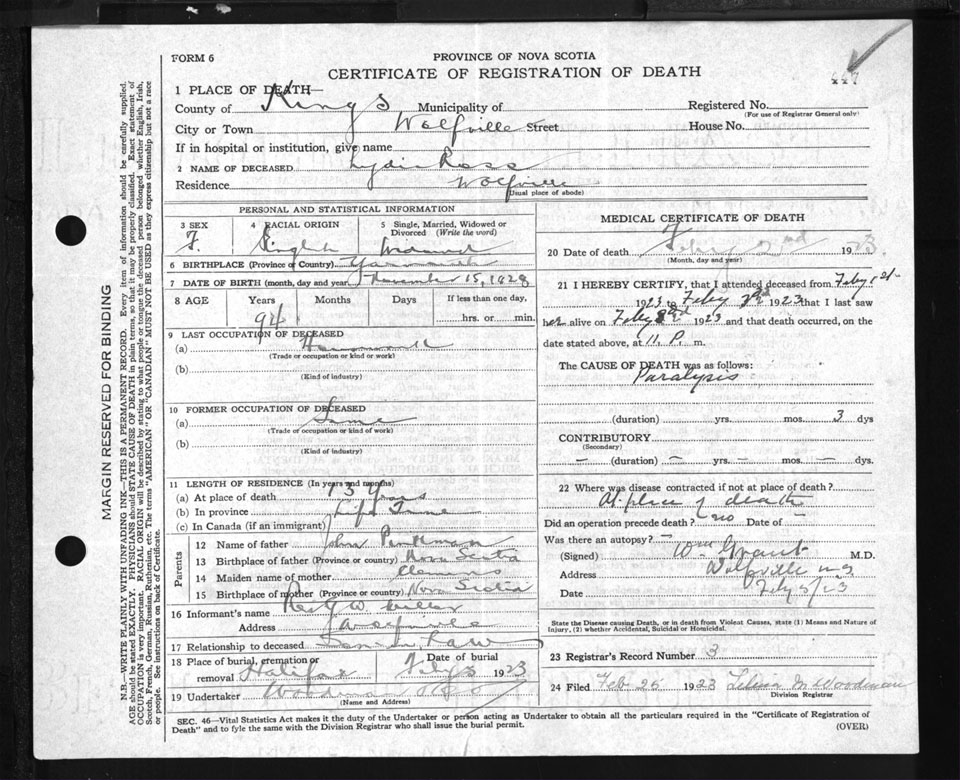 447
FORM 6
PROVINCE OF NOVA SCOTIA
CERTIFICATE OF REGISTRATION OF DEATH
1 PLACE OF DEATH—
County of Kings Municipality of Registered No.
(For use of Registrar General only)
City or Town Wolfville Street House No.
If in hospital or institution, give name
2 NAME OF DECEASED Lydia Ross
Residence Wolfville
(Usual place of abode)
PERSONAL AND STATISTICAL INFORMATION
3 SEX 4 RACIAL ORIGIN 5 Single, Married, Widowed or Divorced (Write the word)
F. English Widowed
6 BIRTHPLACE (Province or Country) Yarmouth
7 DATE OF BIRTH (month, day and year) November 15, 1828
8 AGE Years Months Days If less than one day,
94 hrs. or min.
9 LAST OCCUPATION OF DECEASED
(a)
(Trade or occupation or kind or work)
(b)
(Kind of industry)
10 FORMER OCCUPATION OF DECEASED
(a) Same
(Trade or occupation or kind of work)
(b)
(Kind of industry)
11 LENGTH OF RESIDENCE (In years and months)
(a) At place of death 13 Years
(b) In province Life Time
(c) In Canada (if an immigrant)
Parents
12 Name of father John
13 Birthplace of father (Province or country) Nova Scotia
14 Maiden name of mother Clemens
15 Birthplace of mother (Province or country) Nova Scotia
16 Informant's name W. Miller
Address Wolfville
17 Relationship to deceased Son in Law
18 Place of burial, cremation or removal Halifax Date of burial Feby 5 1923
19 Undertaker Woodman & Co
(Name and Address)
MEDICAL CERTIFICATE OF DEATH
20 Date of death Feby 2nd 1923
(Month, day and year)
21 I HEREBY CERTIFY, that I attended deceased from Feby 1st
1923 to Feby 1923 that I last saw
her alive on Feby 2nd 1923 and that death occurred, on the
date stated above, at 11 P. m.
The CAUSE OF DEATH was as follows:
Paralysis
(duration) yrs. mos. 3 dys
CONTRIBUTORY
(Secondary)
— (duration) — yrs. — mos. — dys.
22 Where was disease contracted if not at place of death?
At place of death
Did an operation precede death? no Date of —
Was there an autopsy? —
(Signed) Wm Grant M.D.
Address Wolfville N S
Date Feby 5/23
State the Disease causing Death, or in death from Violent Causes, state (1) Means and Nature of
Injury, (2) whether Accidental, Suicidal or Homicidal.
23 Registrar's Record Number 3
24 Filed Feb 25 1923 M. Woodman
Division Registrar
SEC. 46—Vital Statistics Act makes it the duty of the Undertaker or person acting as Undertaker to obtain all the particulars required in the "Certificate of Registration of
Death" and to fyle the same with the Division Registrar who shall issue the burial permit. (OVER)
MARGIN RESERVED FOR BINDING
N.B.—WRITE PLAINLY WITH UNFADING INK—THIS IS A PERMANENT RECORD. Every item of information should be carefully supplied.
AGE should be stated EXACTLY. PHYSICIANS should STATE CAUSE OF DEATH in plain terms, so that it may be properly classified. Exact statement of
OCCUPATION is very important. RACIAL ORIGIN will be described by stating to what people or tongue the deceased person belonged whether English, Irish,
Scotch, French, German, Russian, Ruthenian, etc. The terms "AMERICAN" OR "CANADIAN" MUST NOT BE USED as they express citizenship but not a race
or people. See instructions on back of Certificate.